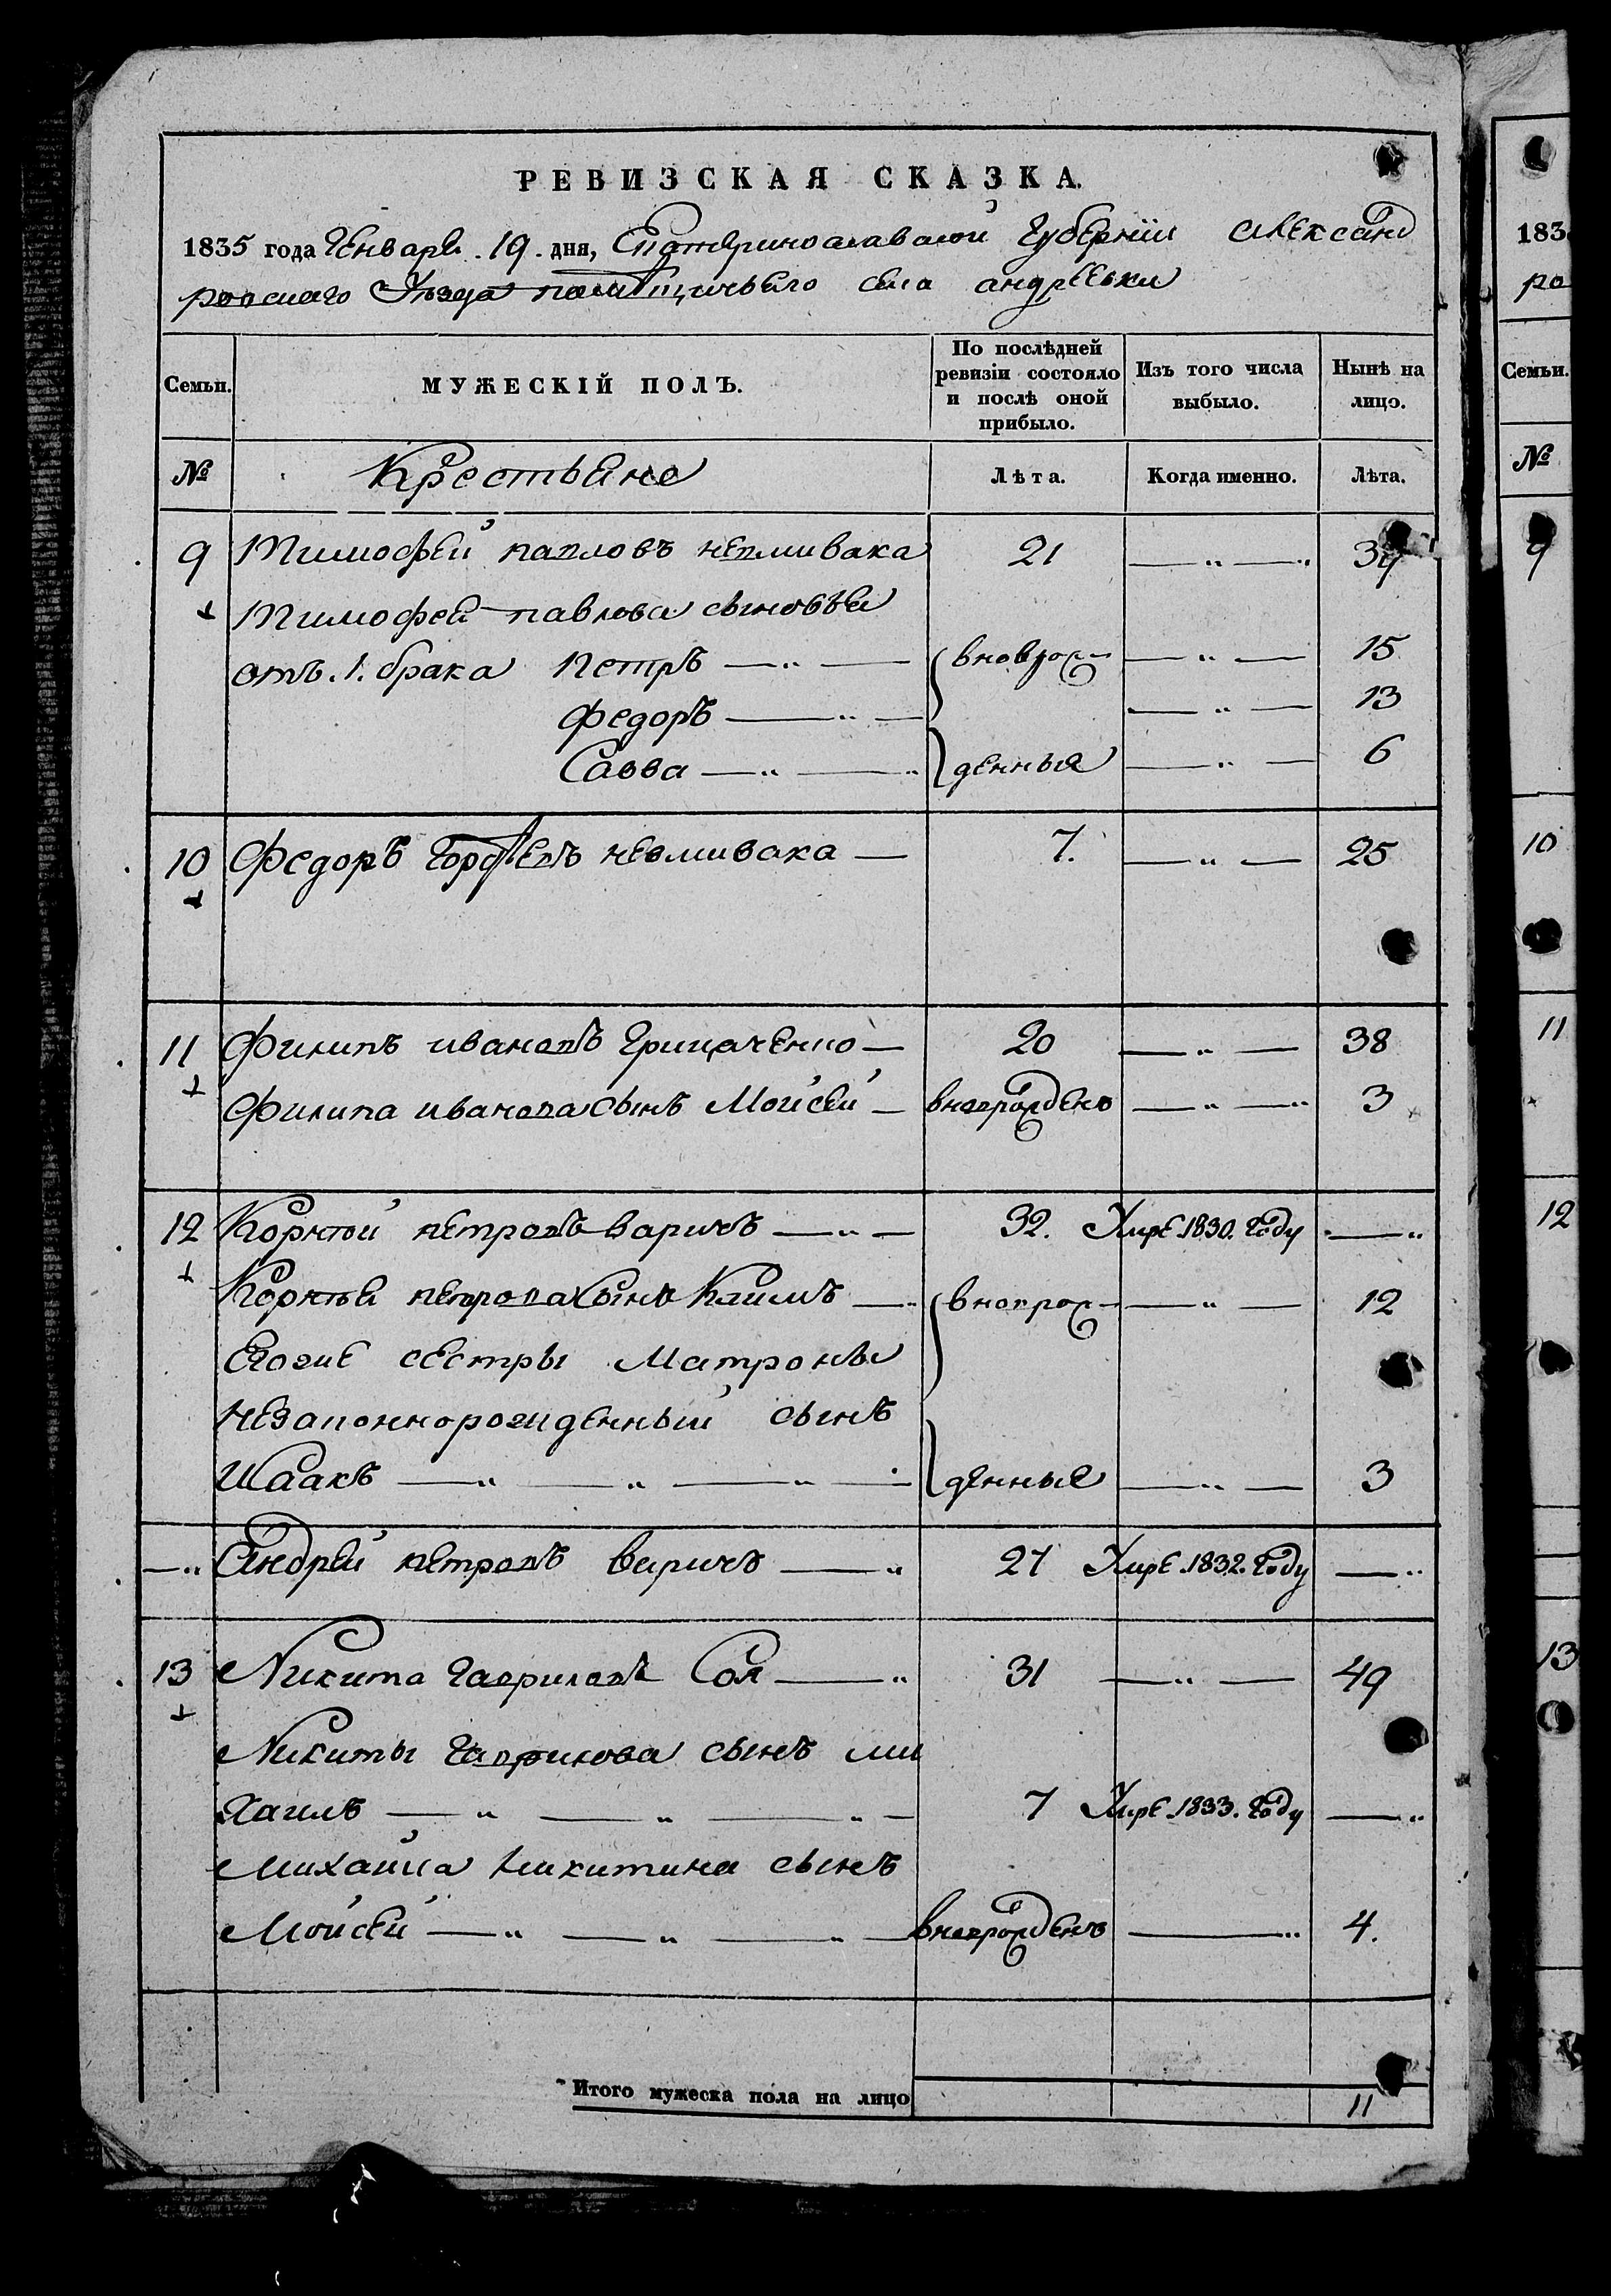 РЕВИЗСКАЯ СКАЗКА.
1835 года Генваря .19. дня, Екатеринославской Губерніи Александ
ровскаго Уезда помѣщичьяго села андрѣевки
Семьи. МУЖЕСКІЙ ПОЛЪ. По послѣдней ревизіи состояло и послѣ оной прибыло. Изъ того числа выбыло. Нынѣ на лицо.
№ Крестьяне Лѣта. Когда именно. Лѣта.
9 Тимофей павловъ невмивака 21 —〃— 39
Тимофея павлова сыновья
отъ .1. брака Петръ —〃— вновро- —〃— 15
Федоръ —〃— —〃— 13
Савва —〃— жденныя —〃— 6
10 Федоръ Гордѣевъ невмивака — 7. —〃— 25
11 Филипъ ивановъ Грицаченко — 20 —〃— 38
Филипа иванова сынъ Мойсей — вноврожденъ —〃— 3
12 Корнѣй петровъ варичъ —〃— 32. Умре .1830. Году —〃
Корнѣя петрова сынъ Климъ — вноврож- —〃— 12
Егоже сестры Матроны
незаконнорожденный сынъ
Исаакъ —〃—〃—〃— денные —〃— 3
—〃 Андрей петровъ варичъ —〃 27 Умре .1832. Году —〃
13 Никита гавриловъ Соя —〃 31 —〃— 49
Никиты гаврилова сынъ ми
хаилъ —〃—〃—〃— 7 Умре .1833. Году —〃
михайла никитина сынъ
Мойсей —〃—〃—〃— вноврожденъ —〃 4.
Итого мужеска пола на лицо 11
183
ро
Семьи.
№
9
10
11
12
13